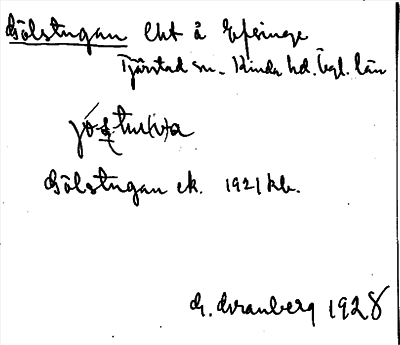 Gölstugan lht å Opsinge
Tjärstad sn. Kinda hd. Ögl. län
Gölstugan ek. 1921 kb.
G. Granberg 1928